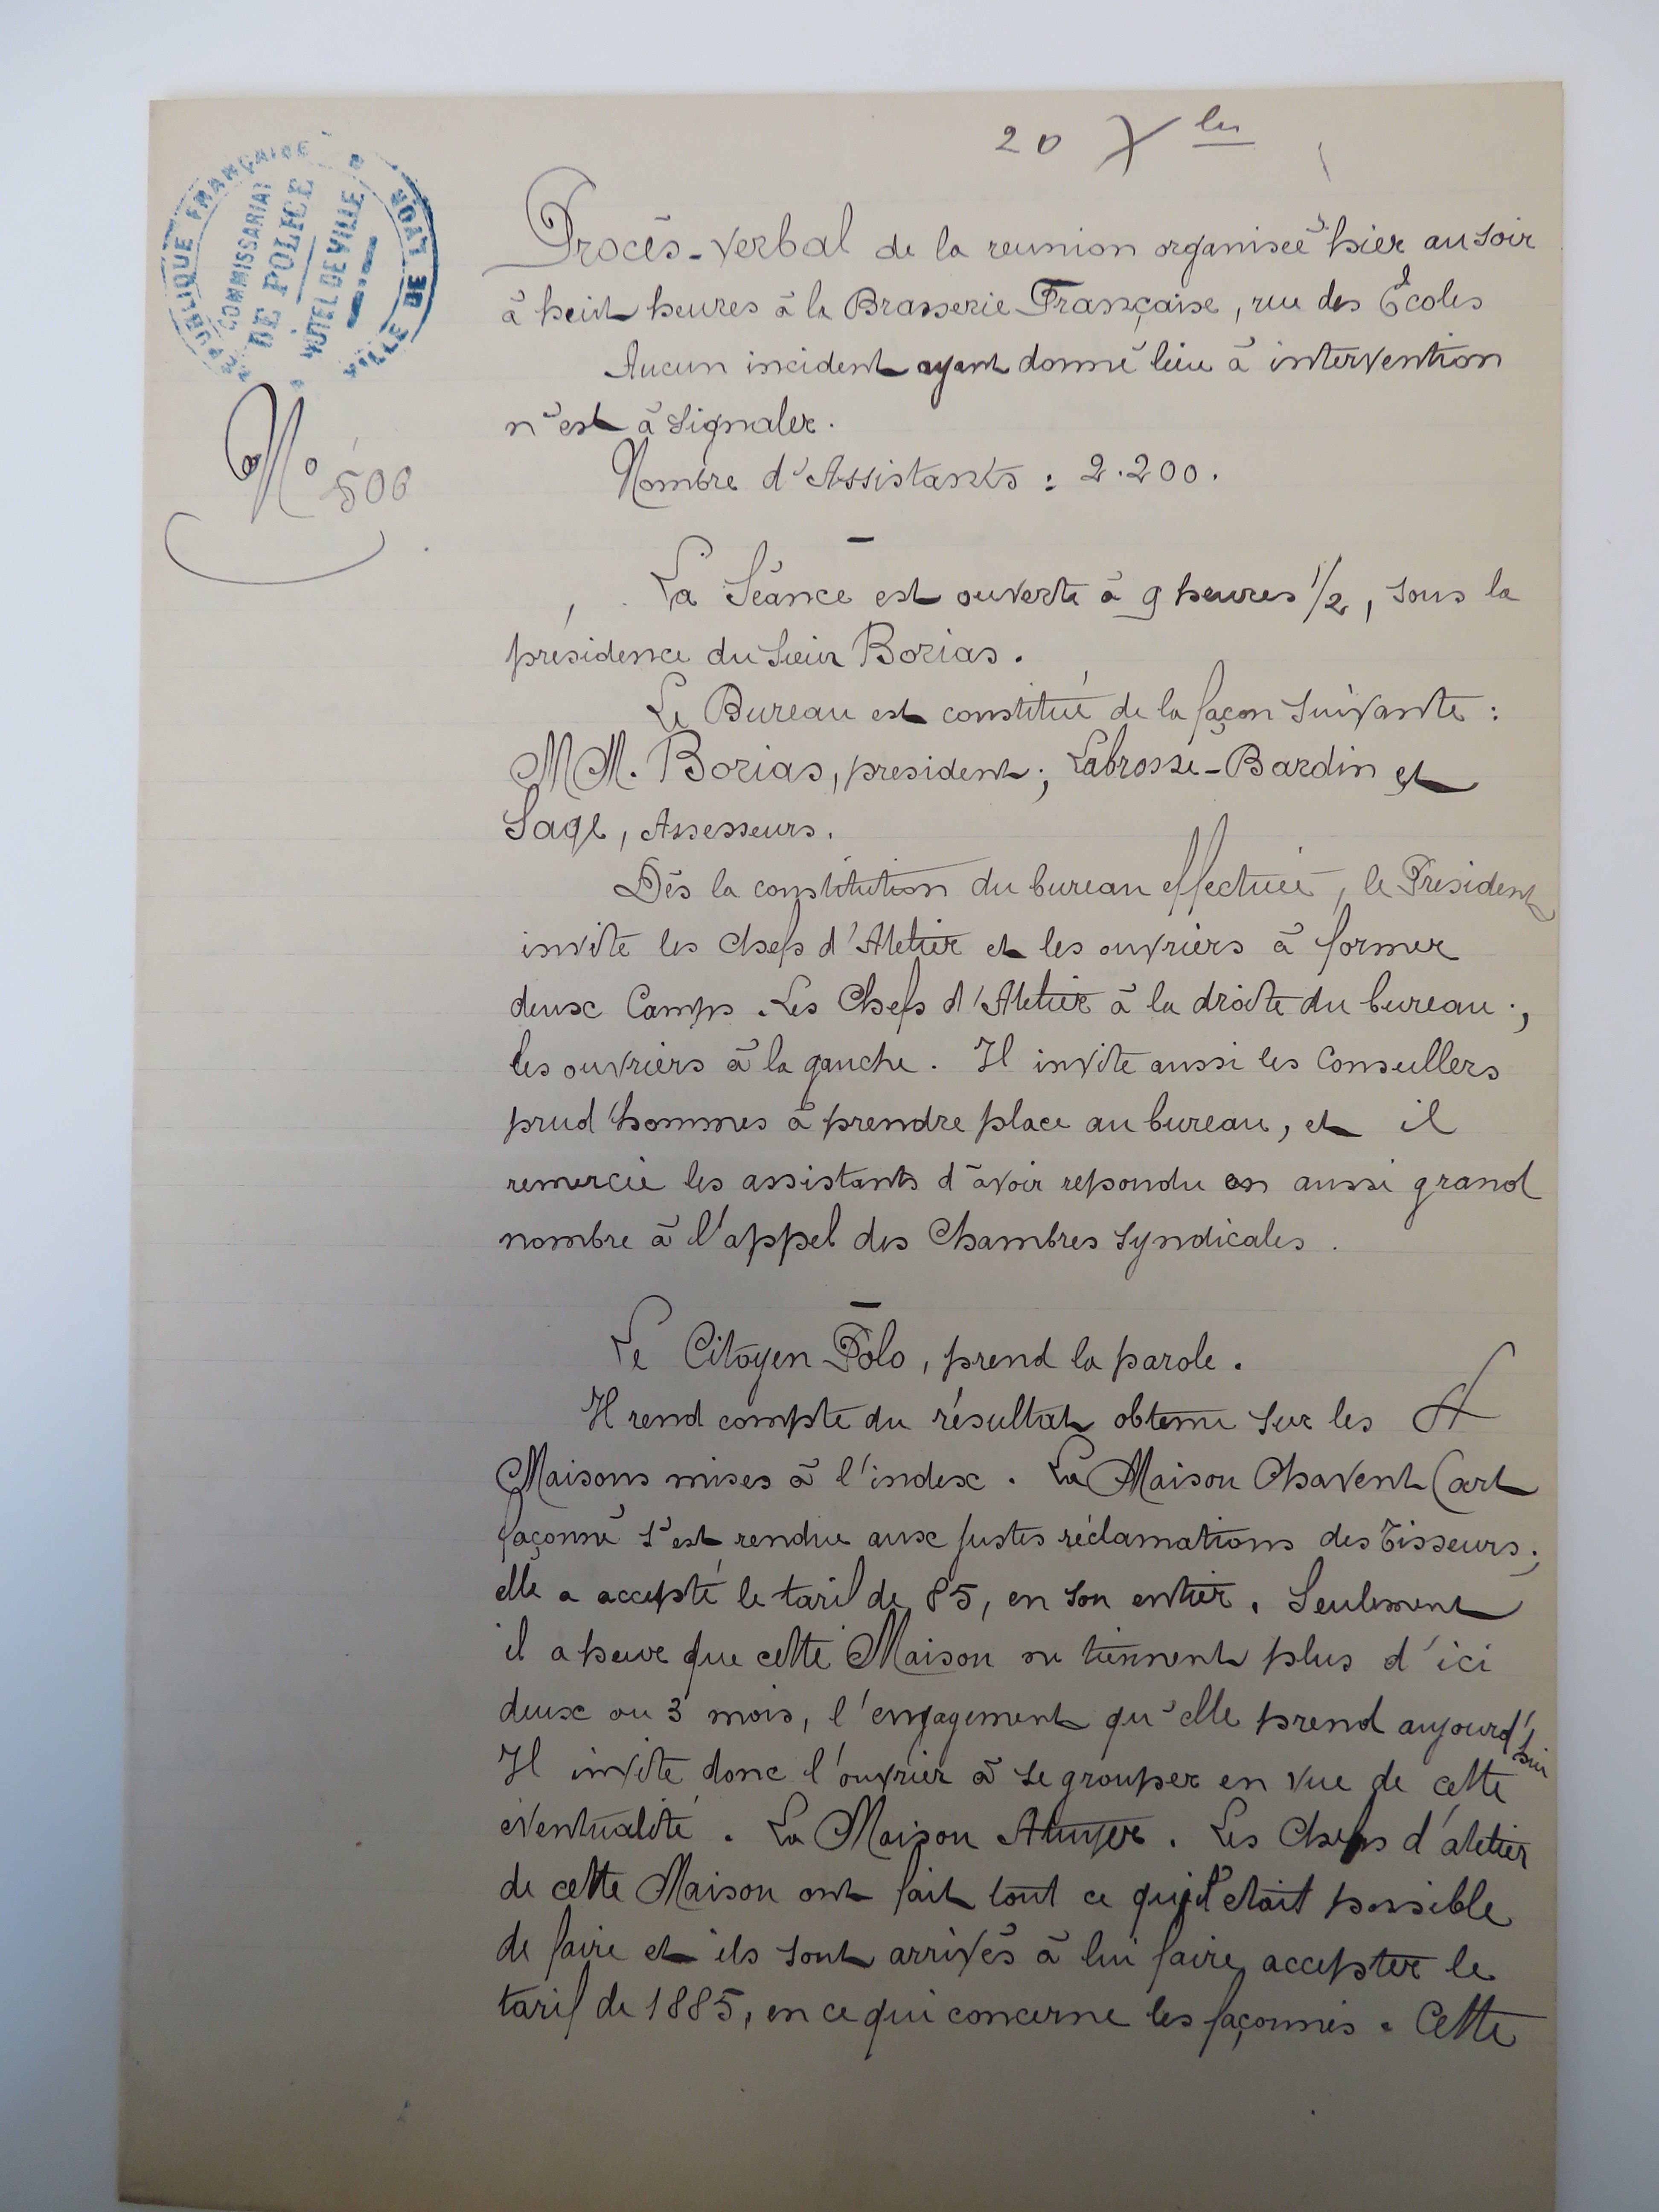 20 Xbre
RÉPUBLIQUE FRANÇAISE
VILLE DE LYON
COMMISSARIAT
DE POLICE
HÔTEL DE VILLE
No 500
Procès-verbal de la reunion organisée hier au soir
à huit heures à la Brasserie Française, rue des Écoles
Aucun incident ayant donné lieu à intervention
n'est à signaler.
Nombre d'Assistants : 2.200.
La Séance est ouverte à 9 heures 1/2, sous la
présidence du sieur Borias.
Le Bureau est constitué de la façon suivante :
MM. Borias, president ; Labrosse-Bardin et
Sage, Assesseurs.
Dès la constitution du bureau effectuée, le Président
invite les chefs d'Atelier et les ouvriers à former
deux Camps. Les Chefs d'Atelier à la droite du bureau ;
les ouvriers à la gauche. Il invite aussi les Conseillers
prud'hommes à prendre place au bureau, et il
remercie les assistants d'avoir repondu en aussi grand
nombre à l'appel des Chambres Syndicales.
Le Citoyen Polo, prend la parole.
Il rend compte du résultat obtenu sur les
Maisons mises à l'index. La Maison Chavent (art
façonné s'est rendue aux justes réclamations des Tisseurs ;
elle a accepté le tarif de 85, en son entier. Seulement
il a peur que cette Maison ne tiennent plus d'ici
deux ou 3 mois, l'engagement qu'elle prend aujourd'hui
Il invite donc l'ouvrier à se grouper en vue de cette
éventualité. La Maison Atuyer. Les Chefs d'atelier
de cette Maison ont fait tout ce qu'il etait possible
de faire et ils sont arrivés à lui faire accepter le
tarif de 1885, en ce qui concerne les façonnés. Cette